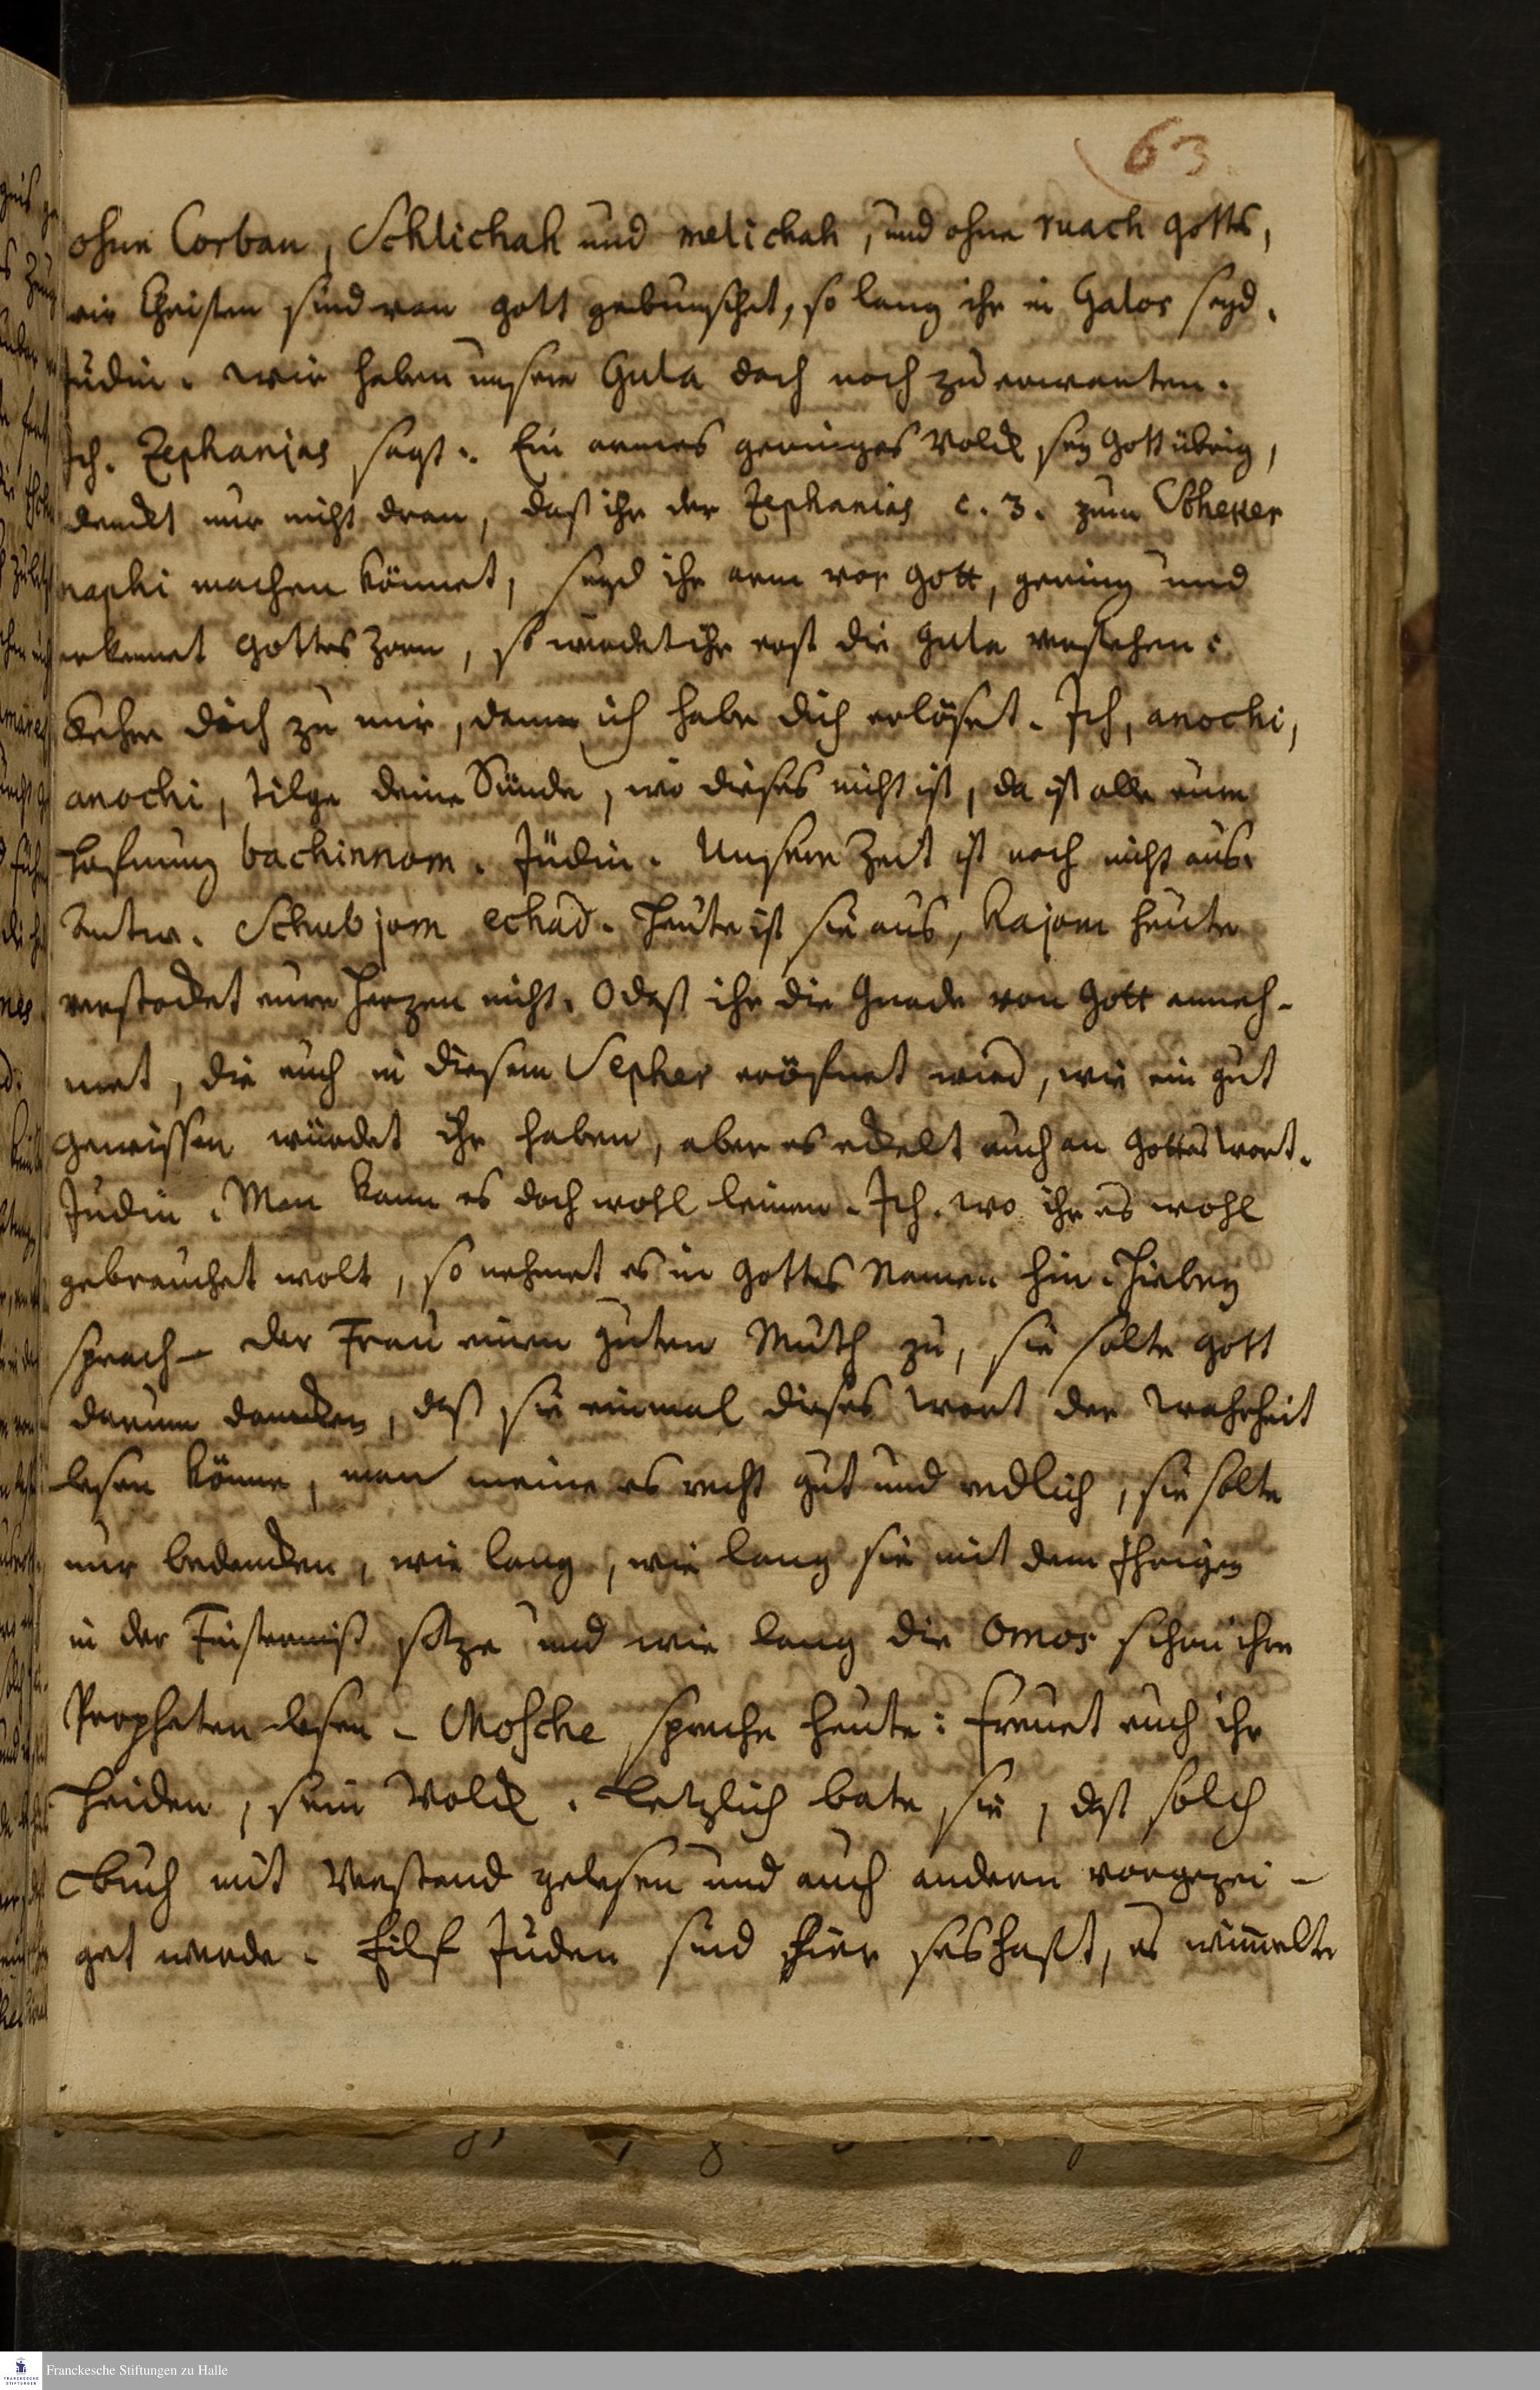 63
ohne Corban, Schlichah und melichah, und ohne ruach Gottes,
wir Christen sind von Gott gebenschet, so lang ihr in Galos seyd.
Jüdin. Wir haben unsere Gula doch noch zu erwarten.
Ich. Zephanjas sagt: Ein armes geringes Volck sey Gott übrig,
denckt nur nicht dran, daß ihr der Zephanias c. 3. zum Schekker
naphi machen könnet, seyd ihr arm vor Gott, gering und
erkennet Gottes Zorn, so würdet ihr erst die Gula verstehen:
Kehre dich zu mir, denn ich habe dich erlöset. Ich, anochi,
anochi, tilge deine Sünde, wo dieses nicht ist, da ist alle eure
Hofnung bachinnom. Jüdin. Unsere Zeit ist noch nicht aus.
Antw. Schub jom echad. Heute ist sie aus, Hajom heute
verstocket eure Herzen nicht. O daß ihr die Gnade von Gott anneh-
met, die euch in diesem Sepher eröfnet wird, wie ein gut
Gewissen würdet ihr haben, aber es ekelt euch an Gottes Wort.
Jüdin. Man kann es doch wohl leinen. Ich. wo ihr es wohl
gebrauchet wolt, so nehmet es in Gottes Namen hin. Hiebey
sprach der Frau einen guten Muth zu, sie solte Gott
darum dancken, daß sie einmal dieses Wort der Wahrheit
lesen könne, man meine es recht gut und redlich, sie solte
nur bedencken, wie lang, wie lang sie mit dem Ihrigen
in der Finsterniß sitze und wie lang die Omos schon ihre
Propheten lesen. Mosche spreche heute: Freuet euch ihr
Heiden, sein Volck. Letzlich bate sie, daß solch
Buch mit Verstand gelesen und auch andern vorgezei-
get werde. Eilf Juden sind hier seshafft, es wim̅elte
Franckesche Stiftungen zu Halle